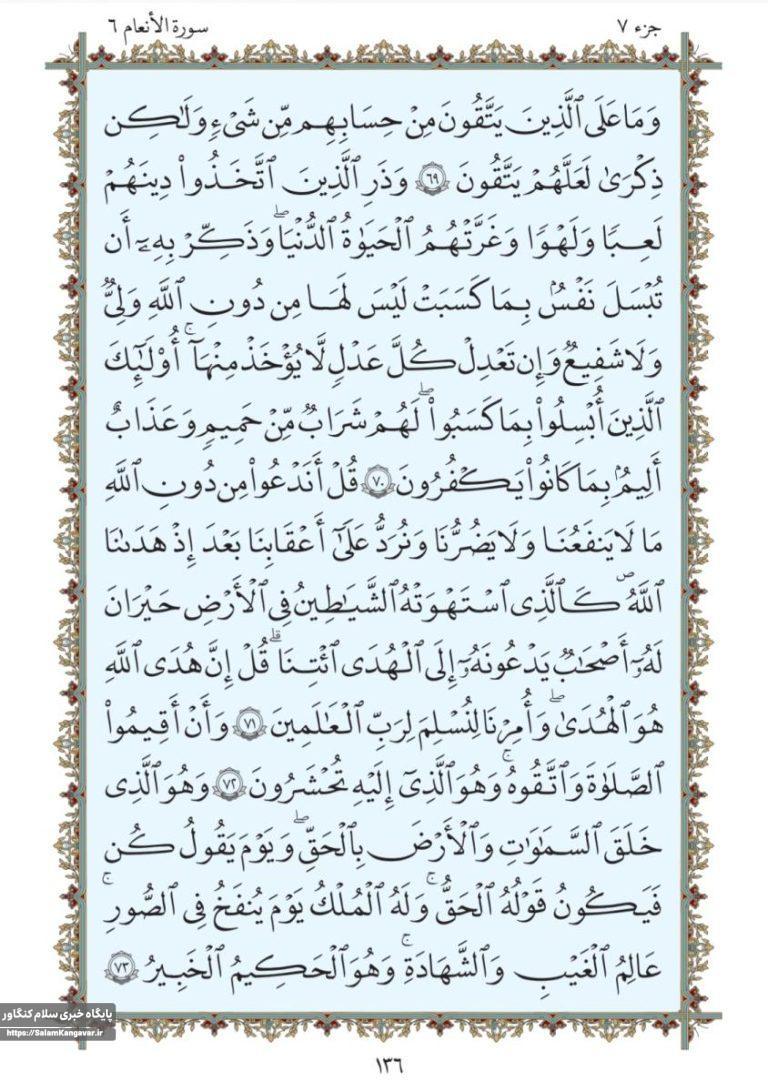 جزء ٧
سورة الأنعام ٦
وَمَا عَلَى ٱلَّذِينَ يَتَّقُونَ مِنْ حِسَابِهِم مِّن شَىْءٍ وَلَٰكِن
ذِكْرَىٰ لَعَلَّهُمْ يَتَّقُونَ ٦٩ وَذَرِ ٱلَّذِينَ ٱتَّخَذُوا۟ دِينَهُمْ
لَعِبًا وَلَهْوًا وَغَرَّتْهُمُ ٱلْحَيَوٰةُ ٱلدُّنْيَا ۖ وَذَكِّرْ بِهِۦٓ أَن
تُبْسَلَ نَفْسٌۢ بِمَا كَسَبَتْ لَيْسَ لَهَا مِن دُونِ ٱللَّهِ وَلِىٌّ
وَلَا شَفِيعٌ وَإِن تَعْدِلْ كُلَّ عَدْلٍ لَّا يُؤْخَذْ مِنْهَآ ۗ أُو۟لَٰٓئِكَ
ٱلَّذِينَ أُبْسِلُوا۟ بِمَا كَسَبُوا۟ ۖ لَهُمْ شَرَابٌ مِّنْ حَمِيمٍ وَعَذَابٌ
أَلِيمٌۢ بِمَا كَانُوا۟ يَكْفُرُونَ ٧٠ قُلْ أَنَدْعُوا۟ مِن دُونِ ٱللَّهِ
مَا لَا يَنفَعُنَا وَلَا يَضُرُّنَا وَنُرَدُّ عَلَىٰٓ أَعْقَابِنَا بَعْدَ إِذْ هَدَىٰنَا
ٱللَّهُ ۖ كَٱلَّذِى ٱسْتَهْوَتْهُ ٱلشَّيَٰطِينُ فِى ٱلْأَرْضِ حَيْرَانَ
لَهُۥٓ أَصْحَٰبٌ يَدْعُونَهُۥٓ إِلَى ٱلْهُدَى ٱئْتِنَا ۗ قُلْ إِنَّ هُدَى ٱللَّهِ
هُوَ ٱلْهُدَىٰ ۖ وَأُمِرْنَا لِنُسْلِمَ لِرَبِّ ٱلْعَٰلَمِينَ ٧١ وَأَنْ أَقِيمُوا۟
ٱلصَّلَوٰةَ وَٱتَّقُوهُ ۚ وَهُوَ ٱلَّذِىٓ إِلَيْهِ تُحْشَرُونَ ٧٢ وَهُوَ ٱلَّذِى
خَلَقَ ٱلسَّمَٰوَٰتِ وَٱلْأَرْضَ بِٱلْحَقِّ ۖ وَيَوْمَ يَقُولُ كُن
فَيَكُونُ قَوْلُهُ ٱلْحَقُّ ۚ وَلَهُ ٱلْمُلْكُ يَوْمَ يُنفَخُ فِى ٱلصُّورِ ۚ
عَالِمُ ٱلْغَيْبِ وَٱلشَّهَادَةِ ۚ وَهُوَ ٱلْحَكِيمُ ٱلْخَبِيرُ ٧٣
پایگاه خبری سلام کنگاور
https://SalamKangavar.ir
١٣٦